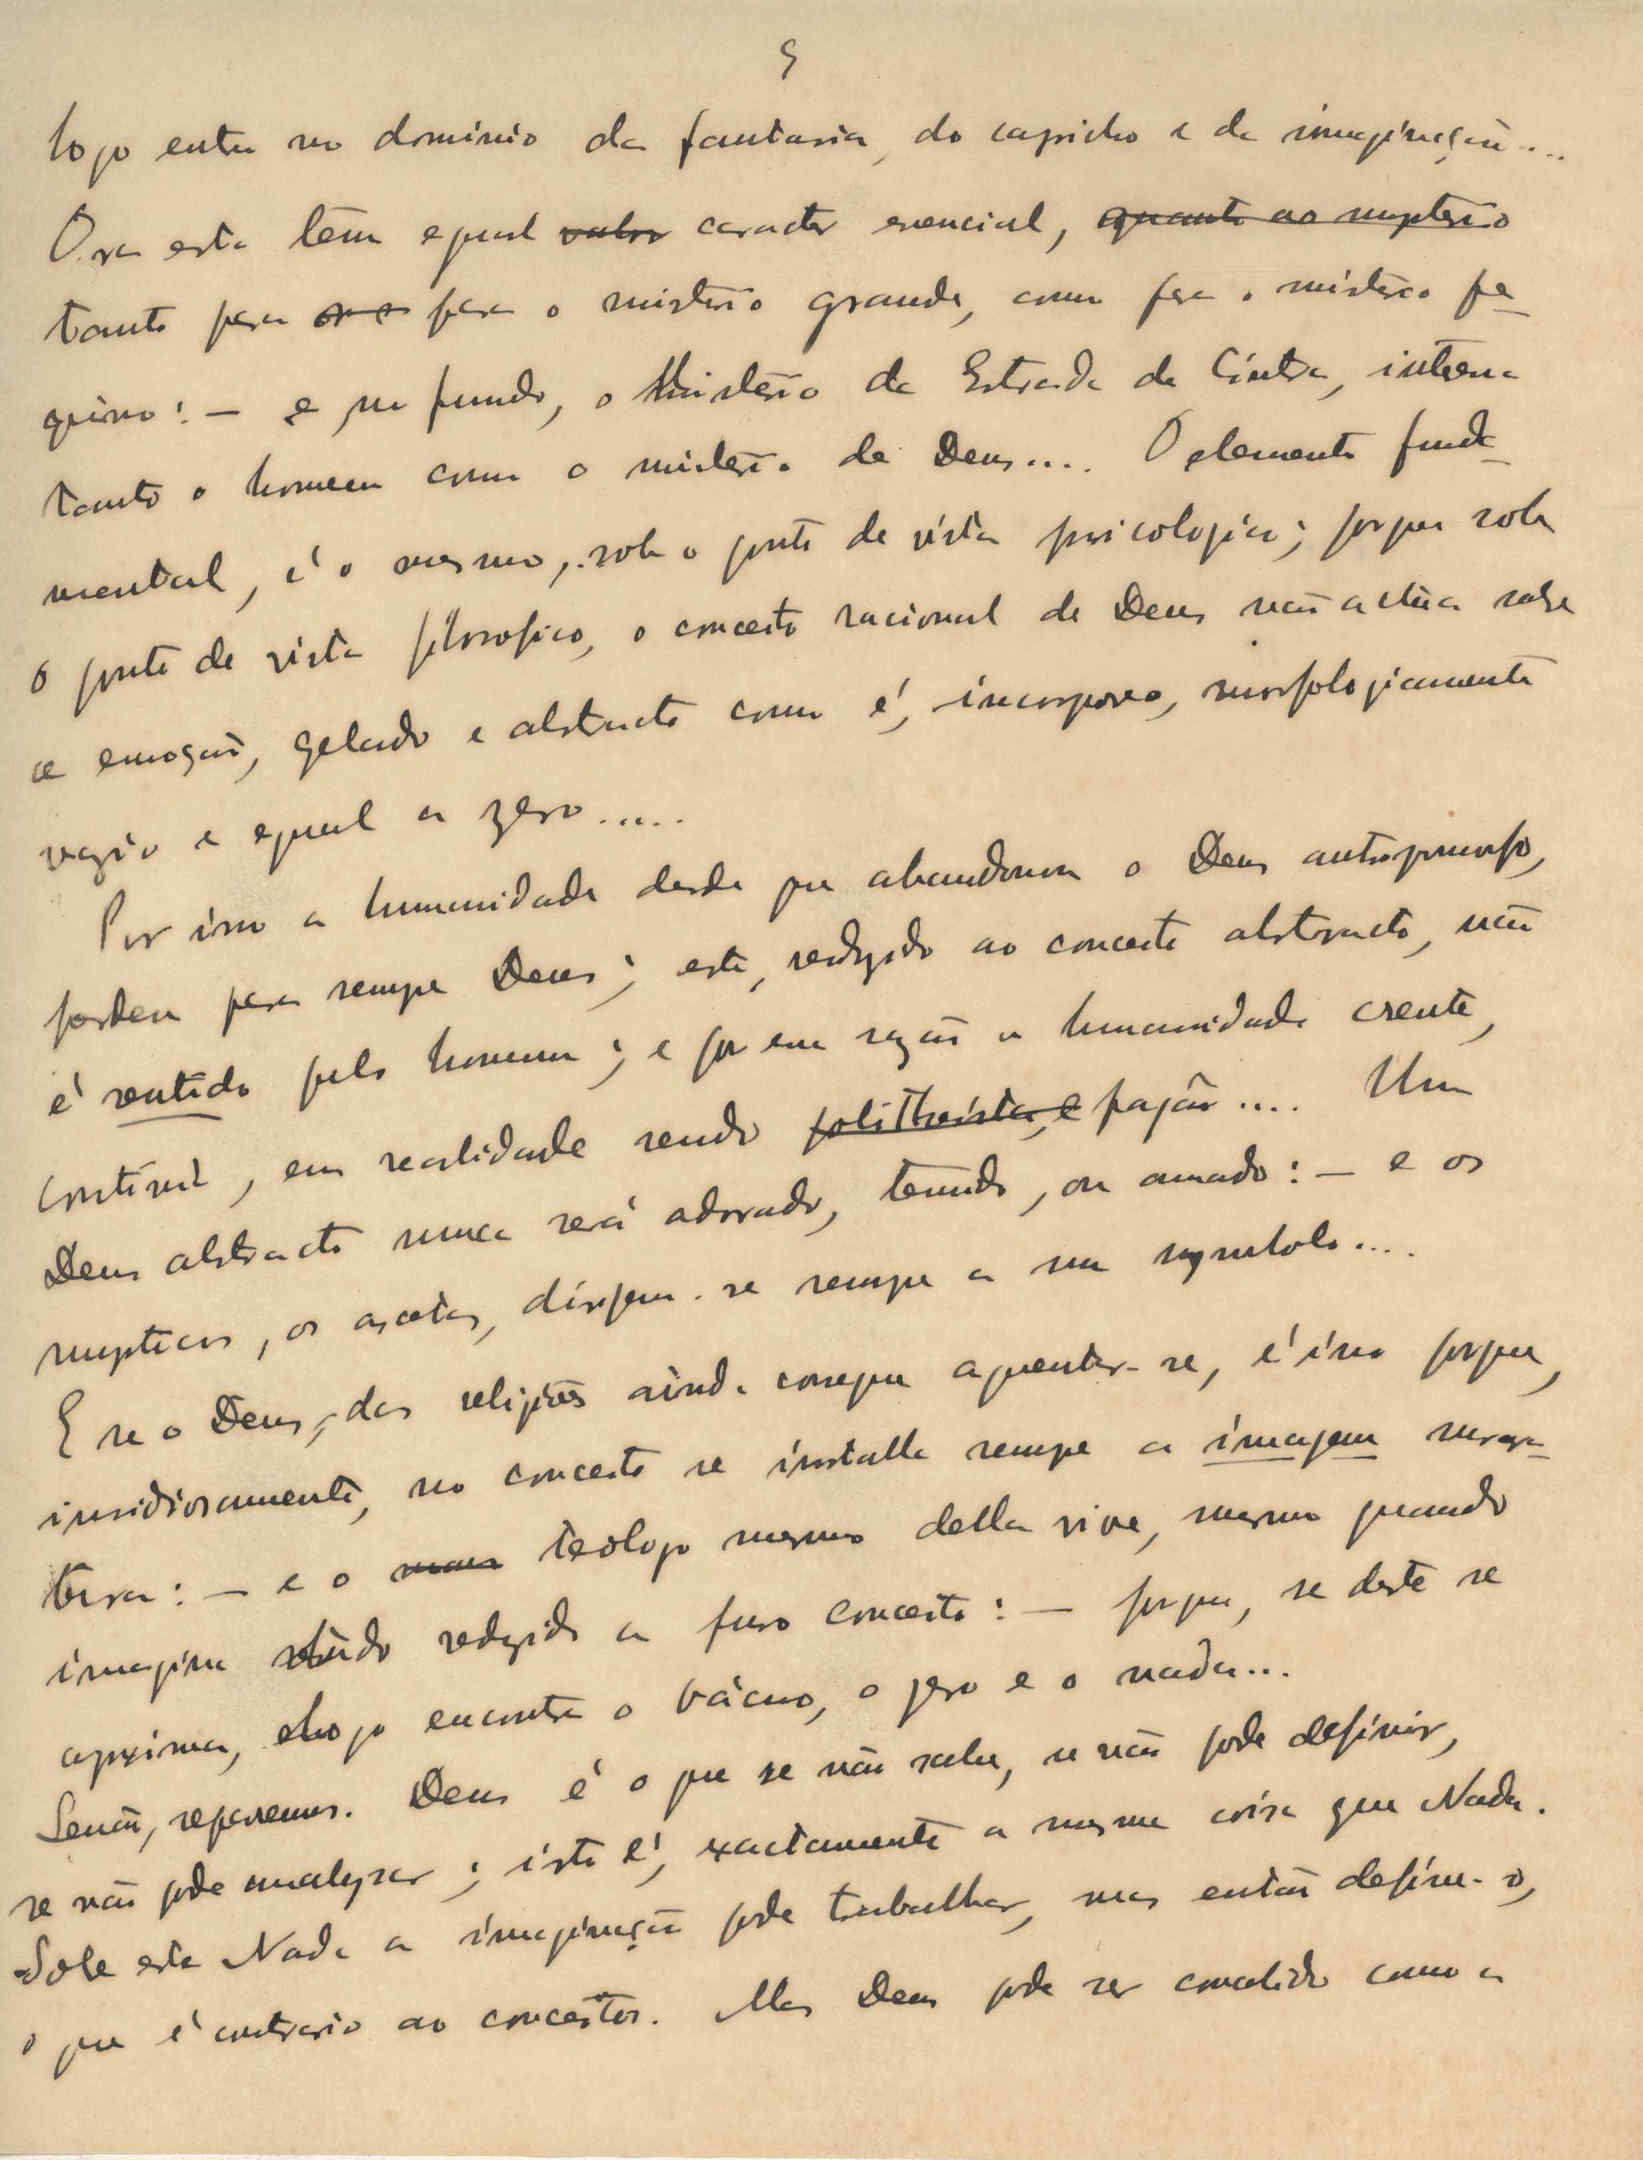 5
logo entra no dominio da fantasia, do capricho e da imaginação....
Ora esta têm egual valor caracter essencial, quanto ao mysterio
tanto para para o misterio grande, como para o misterio pe-
queno: — e no fundo, o Misterio da Estrada de Cintra, interessa
tanto o homem como o misterio de Deus.... O elemento funda-
mental, é o mesmo, sob o ponto de vista psicologico; porque sob
o ponto de vista filosofico, o conceito racional de Deus não actua sobre
a emoção, gelado e abstracto como é, incorporeo, morfologicamente
vazio e egual a zero.....
Por isso a humanidade desde que abandonou o Deus antropomorfo,
perdeu para sempre Deus; este, reduzido ao conceito abstracto, não
é sentido pelo homem; e por essa razão a humanidade crente,
continúa, em realidade sendo politheista, e pagã.... Um
Deus abstracto nunca será adorado, temido, ou amado: — e os
mysticos, os ascetas, dirigem-se sempre a um symbolo....
E se o Deus, das religiões ainda consegue aguentar-se, é isso porque,
insidiosamente, no conceito se installa sempre a imagem
e o mais teologo mesmo della vive, mesmo quando
imagina tudo reduzido a puro conceito: — porque, se deste se
aproxima, logo encontra o vácuo, o zero e o nada...
Senão, reparemos. Deus é o que se não sabe, se não pode definir,
se não pode analysar; isto é, exactamente a mesma coisa que Nada.
Sobre este Nada a imaginação pode trabalhar, mas então define-o,
o que é contrario ao conceito. Mas Deus pode ser concebido como a